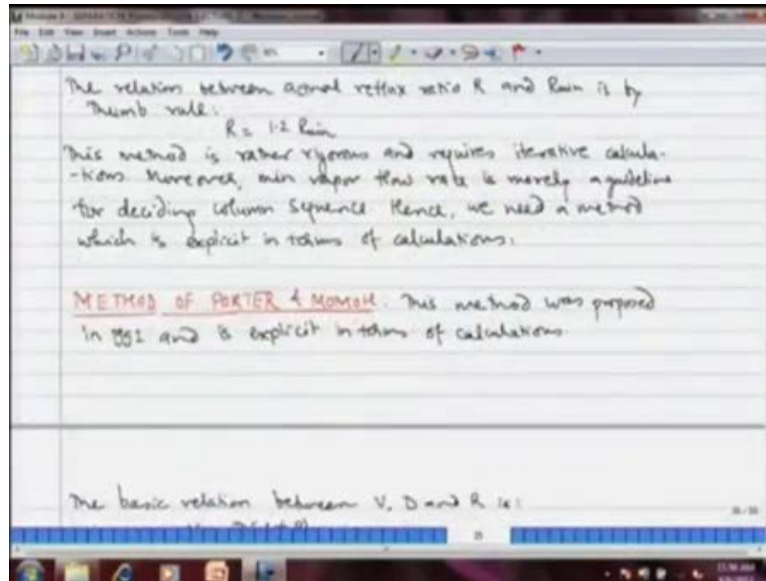 File Edit View Insert Actions Tools Help
The relation between actual reflux ratio R and Rmin is by
Thumb rule:
R = 1.2 Rmin
This method is rather rigorous and requires iterative calcula-
-tions Moreover, min vapor flow rate is merely a guideline
for deciding column sequence Hence, we need a method
which is explicit in terms of calculations.
METHOD OF PORTER & MOMOH. This method was proposed
in 1991 and is explicit in terms of calculations.
The basic relation between V, D and R is:
25
11:56 AM